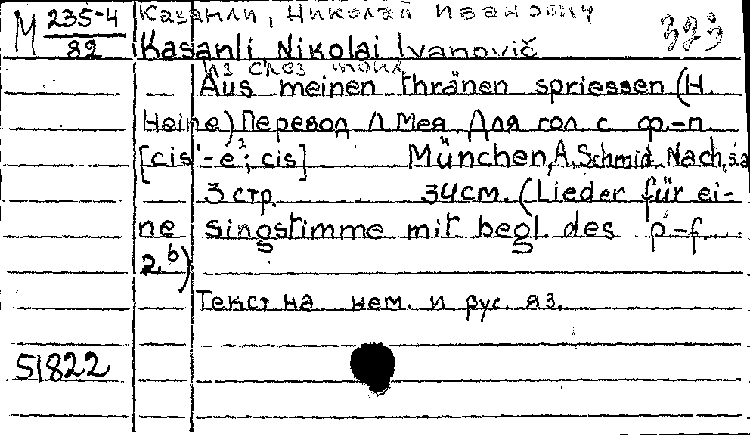 Казанли, Николай Иванович
М 235-4 323
82 Kasanli Nikolai Ivanovič
Из слез моих
Aus meinen Thränen spriessen (H.
Heine) Перевод Л Мея Для гол с ф.-п
[cis'-e²; cis] München, A. Schmid Nach, s.a
3 стр. 34см. (Lieder für ei-
ne Singstimme mit begl. des p-f.
2.b)
Текст на нем. и рус. яз.
51822